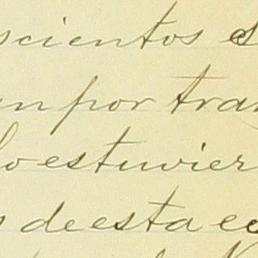 scientos s
n por tra
lo estuvier
de esta ec